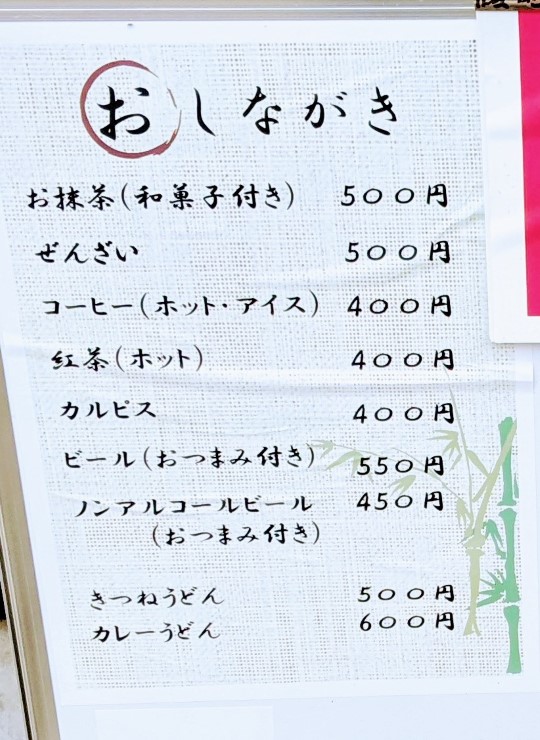 おしながき
お抹茶(和菓子付き) 500円
ぜんざい 500円
コーヒー(ホット・アイス) 400円
紅茶(ホット) 400円
カルピス 400円
ビール(おつまみ付き) 550円
ノンアルコールビール 450円
(おつまみ付き)
きつねうどん 500円
カレーうどん 600円